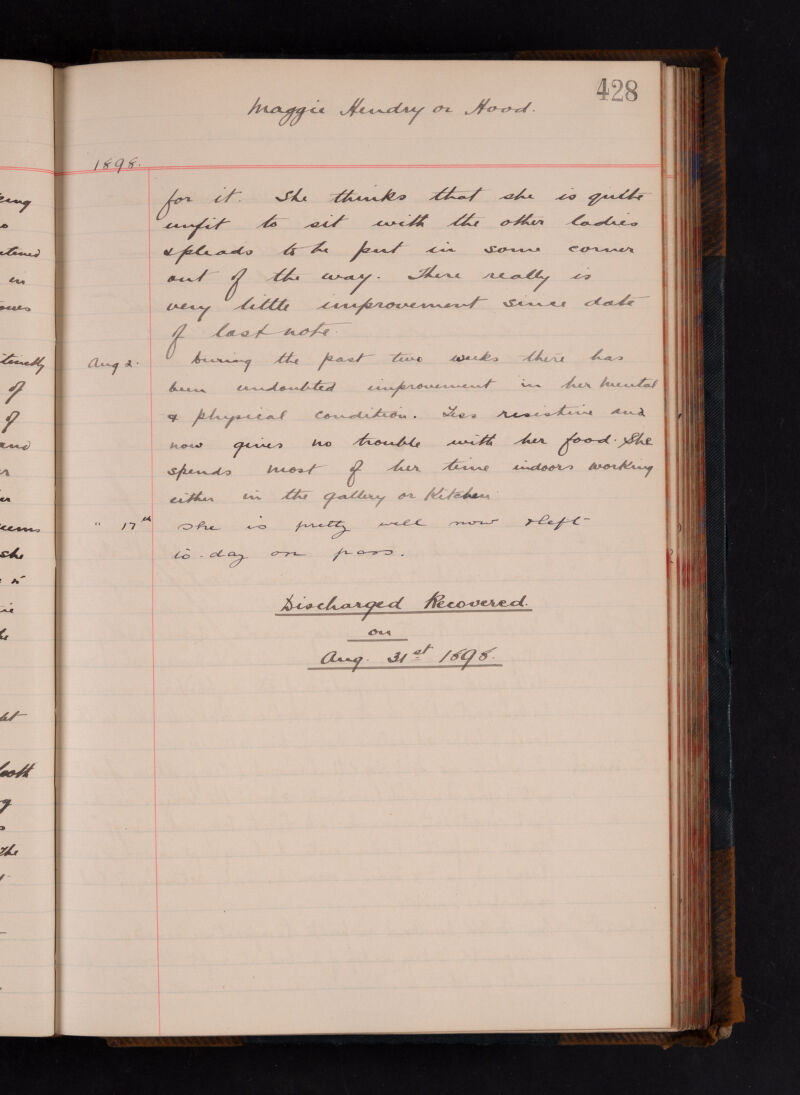 428
Maggie Hendry or Hood.
1898.
for it. She thinks that she is quite
unfit to sit with the other ladies
& pleads to be put in some corner
out of the way. There really is
very little improvement since date
of last note.
Aug 2. During the past two weeks there has
been undoubted improvement in her mental
& physical condition. Less resistive and
now gives no trouble with her food. She
spends most of her time indoors working
either in the gallery or Kitchen
" 17th She is pretty well now & left
to-day on pass.
Discharged Recovered.
on
Aug. 31st 1898.